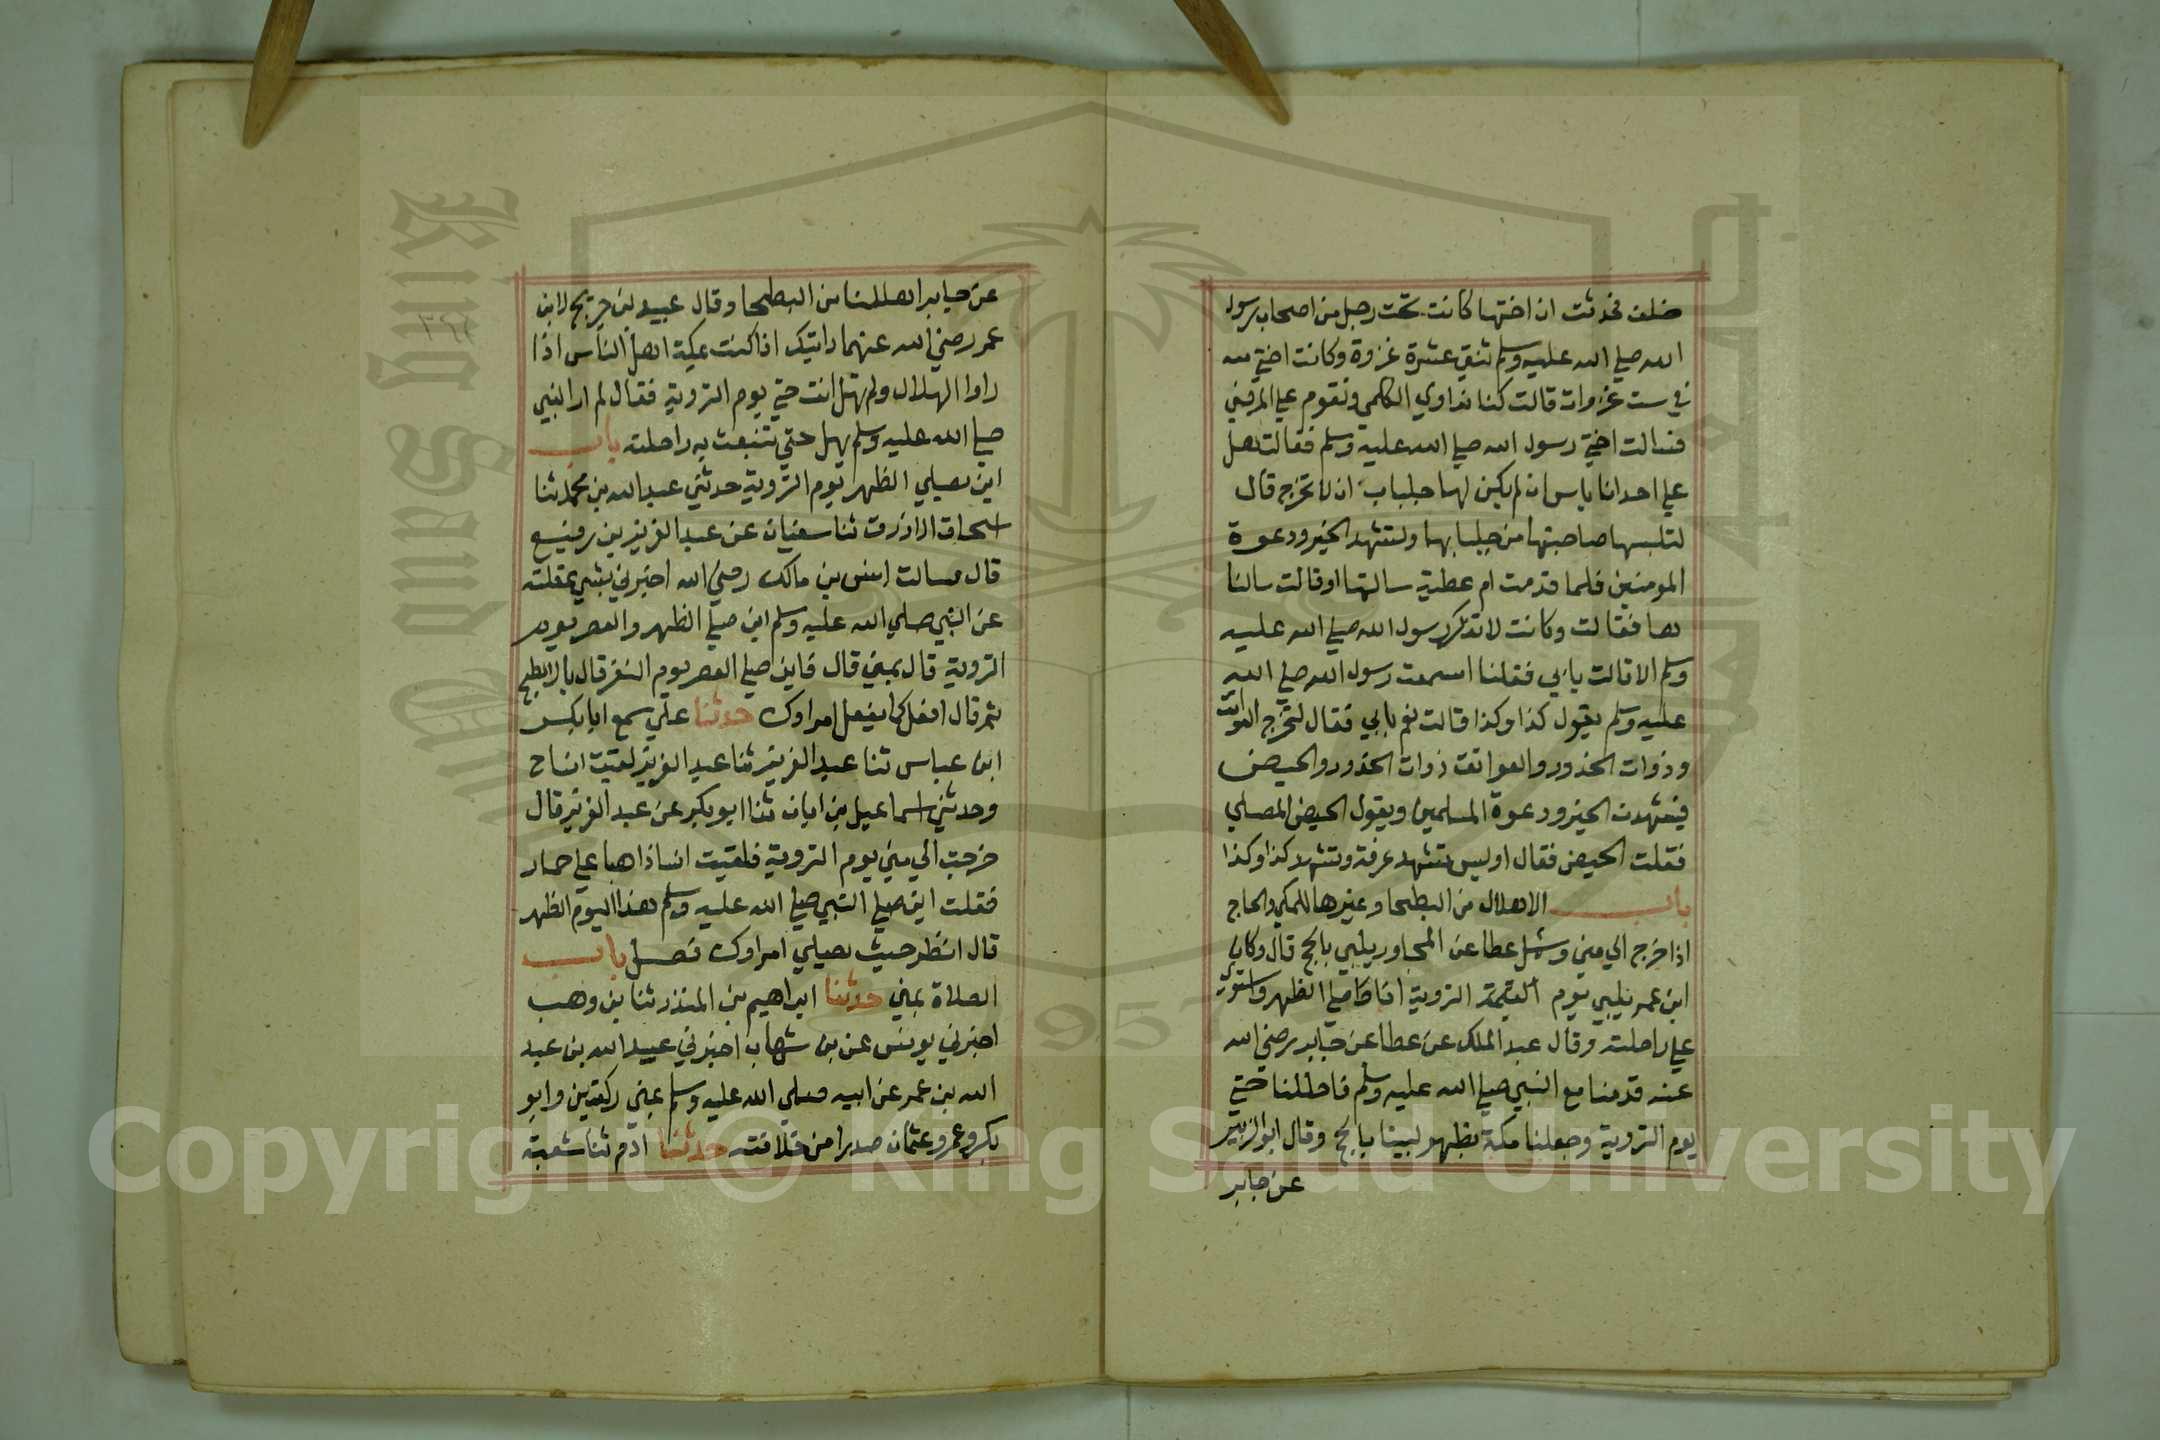 خلف فحدثت ان اختها كانت تحت رجل من اصحاب رسول
الله صلي الله عليه وسلم ثنتي عشرة غزوة وكانت اختي معه
في ست غزوات قالت كنا نداوي الكلمي ونقوم علي المرضي
فسالت اختي رسول الله صلي الله عليه وسلم فقالت هل
علي احدانا باس ان لم يكن لها جلباب ان لا تخرج قال
لتلبسها صاحبتها من جلبابها ولتشهد الخير ودعوة
المومنين فلما قدمت ام عطية سالتها او قالت سالنا
ها فقالت وكانت لا تذكر رسول الله صلي الله عليه
وسلم الا قالت بابي فقلنا اسمعت رسول الله صلي الله
عليه وسلم يقول كذا وكذا قالت نعم بابي فقال لتخرج العواتق
وذوات الخدور والعواتق ذوات الخدور والحيض
فيشهدن الخير ودعوة المسلمين ويقول الحيض المصلي
فقلت الحيض فقال اوليس تشهد عرفة وتشهد كذا وكذا
باب الاهلال من البطحا وغيرها للمكي والحاج
اذا خرج الي مني وسئل عطا عن المجاور يلبي بالحج قال وكان
ابن عمر يلبي يوم التروية اذا صلي الظهر واستوي
علي راحلته وقال عبد الملك عن عطا عن جابر رضي الله
عنه قدمنا مع النبي صلي الله عليه وسلم فاحللنا حتي
يوم التروية وجعلنا مكة بظهر لبينا بالحج وقال ابو الزبير
عن جابر
عن جابر اهللنا من البطحا وقال عبيد بن جريج لابن
عمر رضي الله عنهما رايتك اذا كنت بمكة اهل الناس اذا
راوا الهلال ولم تهل انت حتي يوم التروية فقال لم ار النبي
صلي الله عليه وسلم يهل حتي تنبعث به راحلته باب
اين يصلي الظهر يوم التروية حدثني عبد الله بن محمد ثنا
اسحاق الازرق ثنا سفيان عن عبد العزيز بن رفيع
قال سالت انس بن مالك رضي الله اخبرني بشي عقلته
عن النبي صلي الله عليه وسلم اين صلي الظهر والعصر يوم
التروية قال بمني قال فاين صلي العصر يوم النفر قال بالابطح
ثم قال افعل كما يفعل امراوك حدثنا علي سمع ابا بكر
ابن عباس ثنا عبد العزيز ثنا عبد العزيز لقيت انسا ح
وحدثني اسماعيل بن ابان ثنا ابو بكر عن عبد العزيز قال
خرجت الي مني يوم التروية فلقيت انسا ذاهبا علي حمار
فقلت اين صلي النبي صلي الله عليه وسلم هذا اليوم الظهر
قال انظر حيث يصلي امراوك فصل باب
الصلاة بمني حدثنا ابراهيم بن المنذر ثنا بن وهب
اخبرني يونس عن بن شهاب اخبرني عبيد الله بن عبد
الله بن عمر عن ابيه صلي الله عليه وسلم بمني ركعتين وابو
بكر وعمر وعثمان صدرا من خلافته حدثنا ادم ثنا شعبة
Copyright © King Saud University
King Saud University
1957